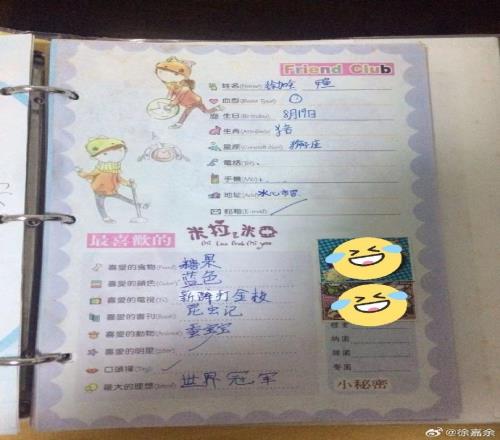 Friend Club
姓名(Name) 徐嘉余
血型(Blood Type) O
生日(Birthday) 8月19日
生肖(Animal) 猪
星座(Constellation) 狮子座
電話(Tel)
手機(Mo)
地址(Add)
郵箱(E-mail)
最喜歡的
米拉之米亞
喜愛的食物(Food) 糖果
喜愛的顏色(Color) 蓝色
喜愛的電視(TV) 新阵打金枝
喜愛的書刊(Book) 昆虫记
喜愛的動物(Animal) 蚕宝宝
喜愛的明星(Star)
口頭禪(Tag)
最大的理想(Ideal) 世界冠军
小秘密
@徐嘉余